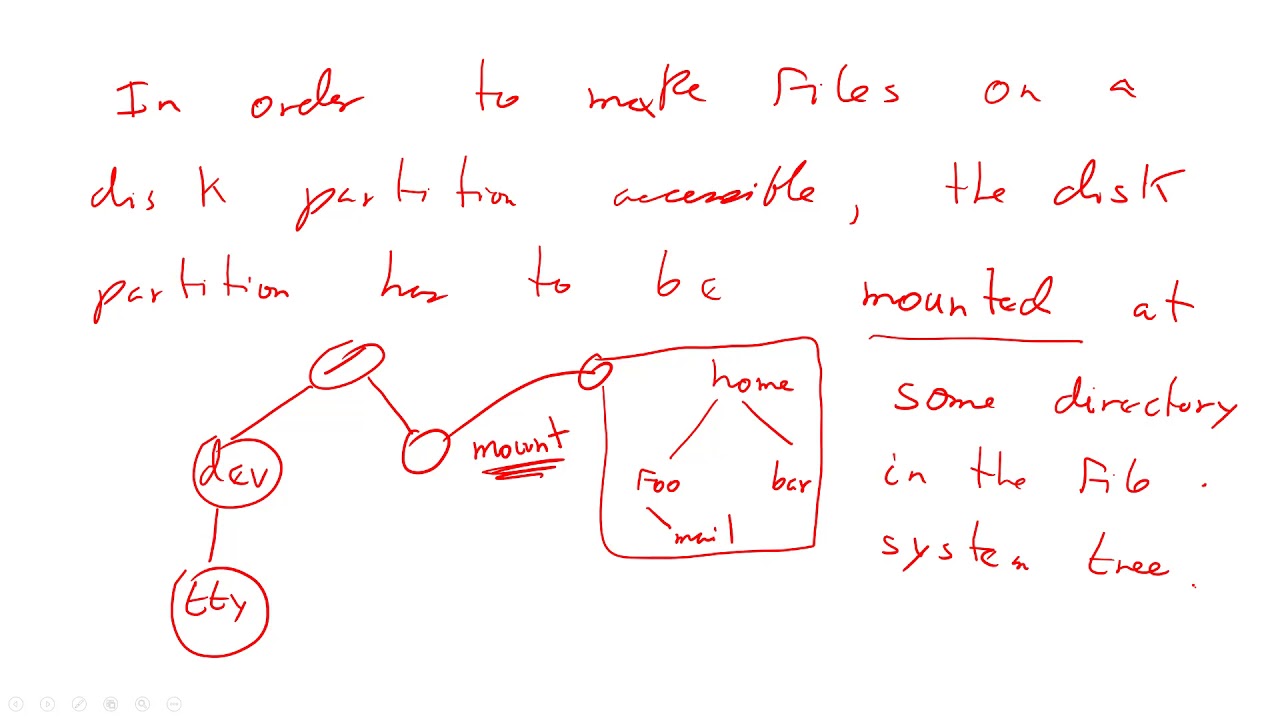 In order to make files on a
disk partition accessible, the disk
partition has to be mounted at
some directory
in the file
system tree.
/
home
mount
dev
Foo
bar
mail
tty